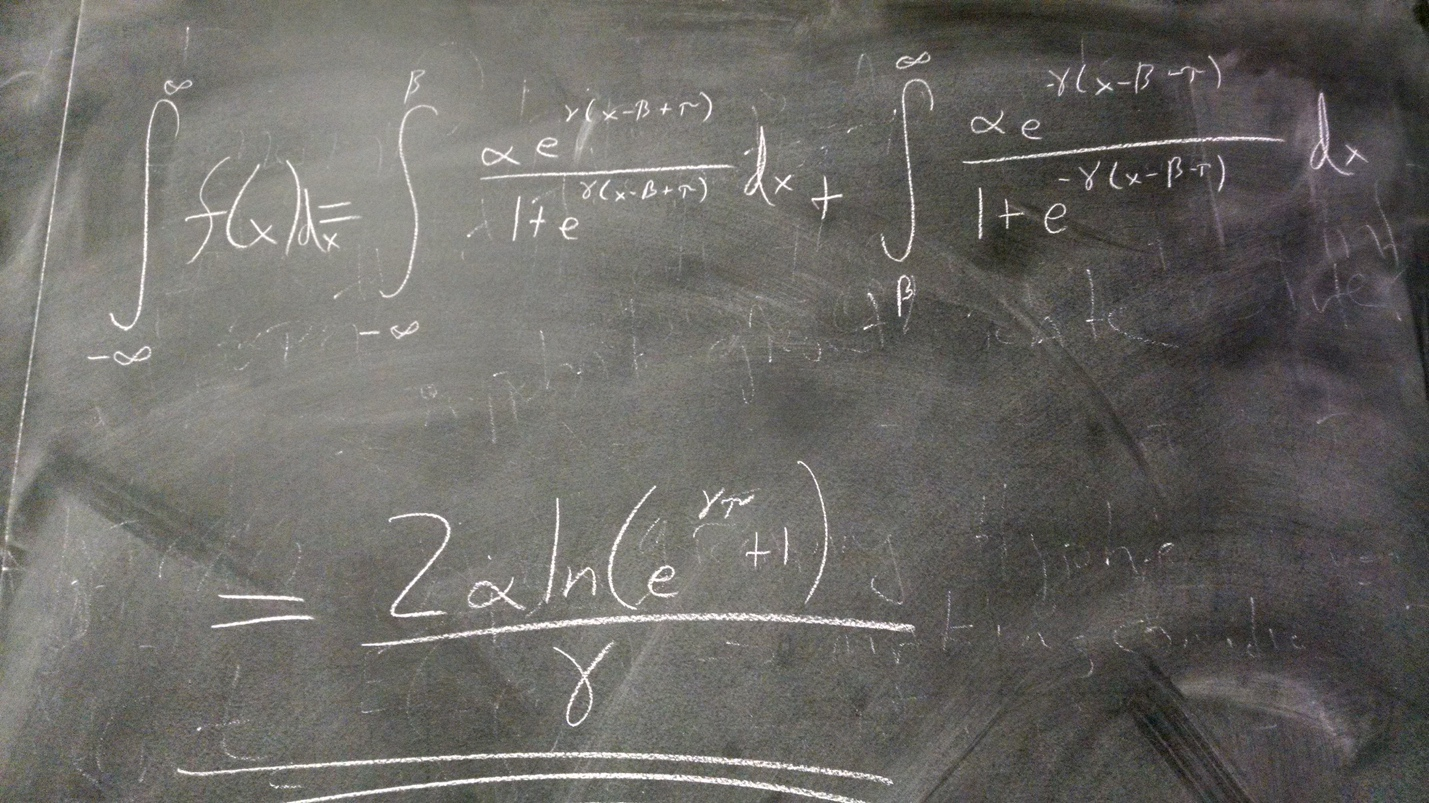 ∫_{-∞}^{∞} f(x)dx = ∫_{-∞}^{β} \frac{α e^{γ(x-β+π)}}{1+e^{γ(x-β+π)}} dx + ∫_{β}^{∞} \frac{α e^{-γ(x-β-π)}}{1+e^{-γ(x-β-π)}} dx
= \frac{2α ln(e^{γπ}+1)}{γ}